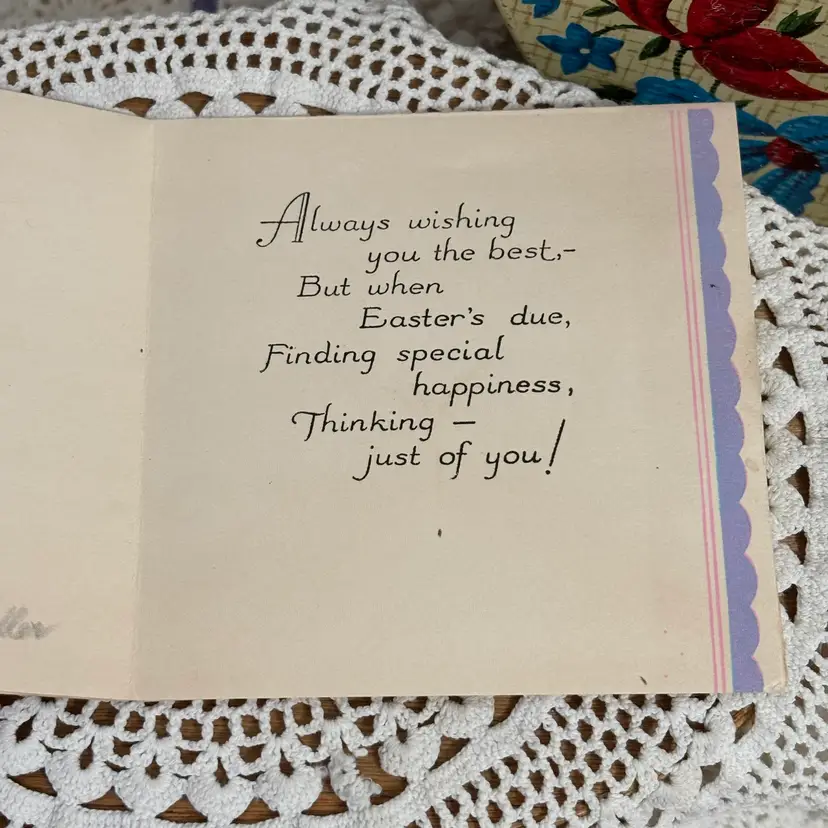 Always wishing
you the best,-
But when
Easter's due,
Finding special
happiness,
Thinking —
just of you!